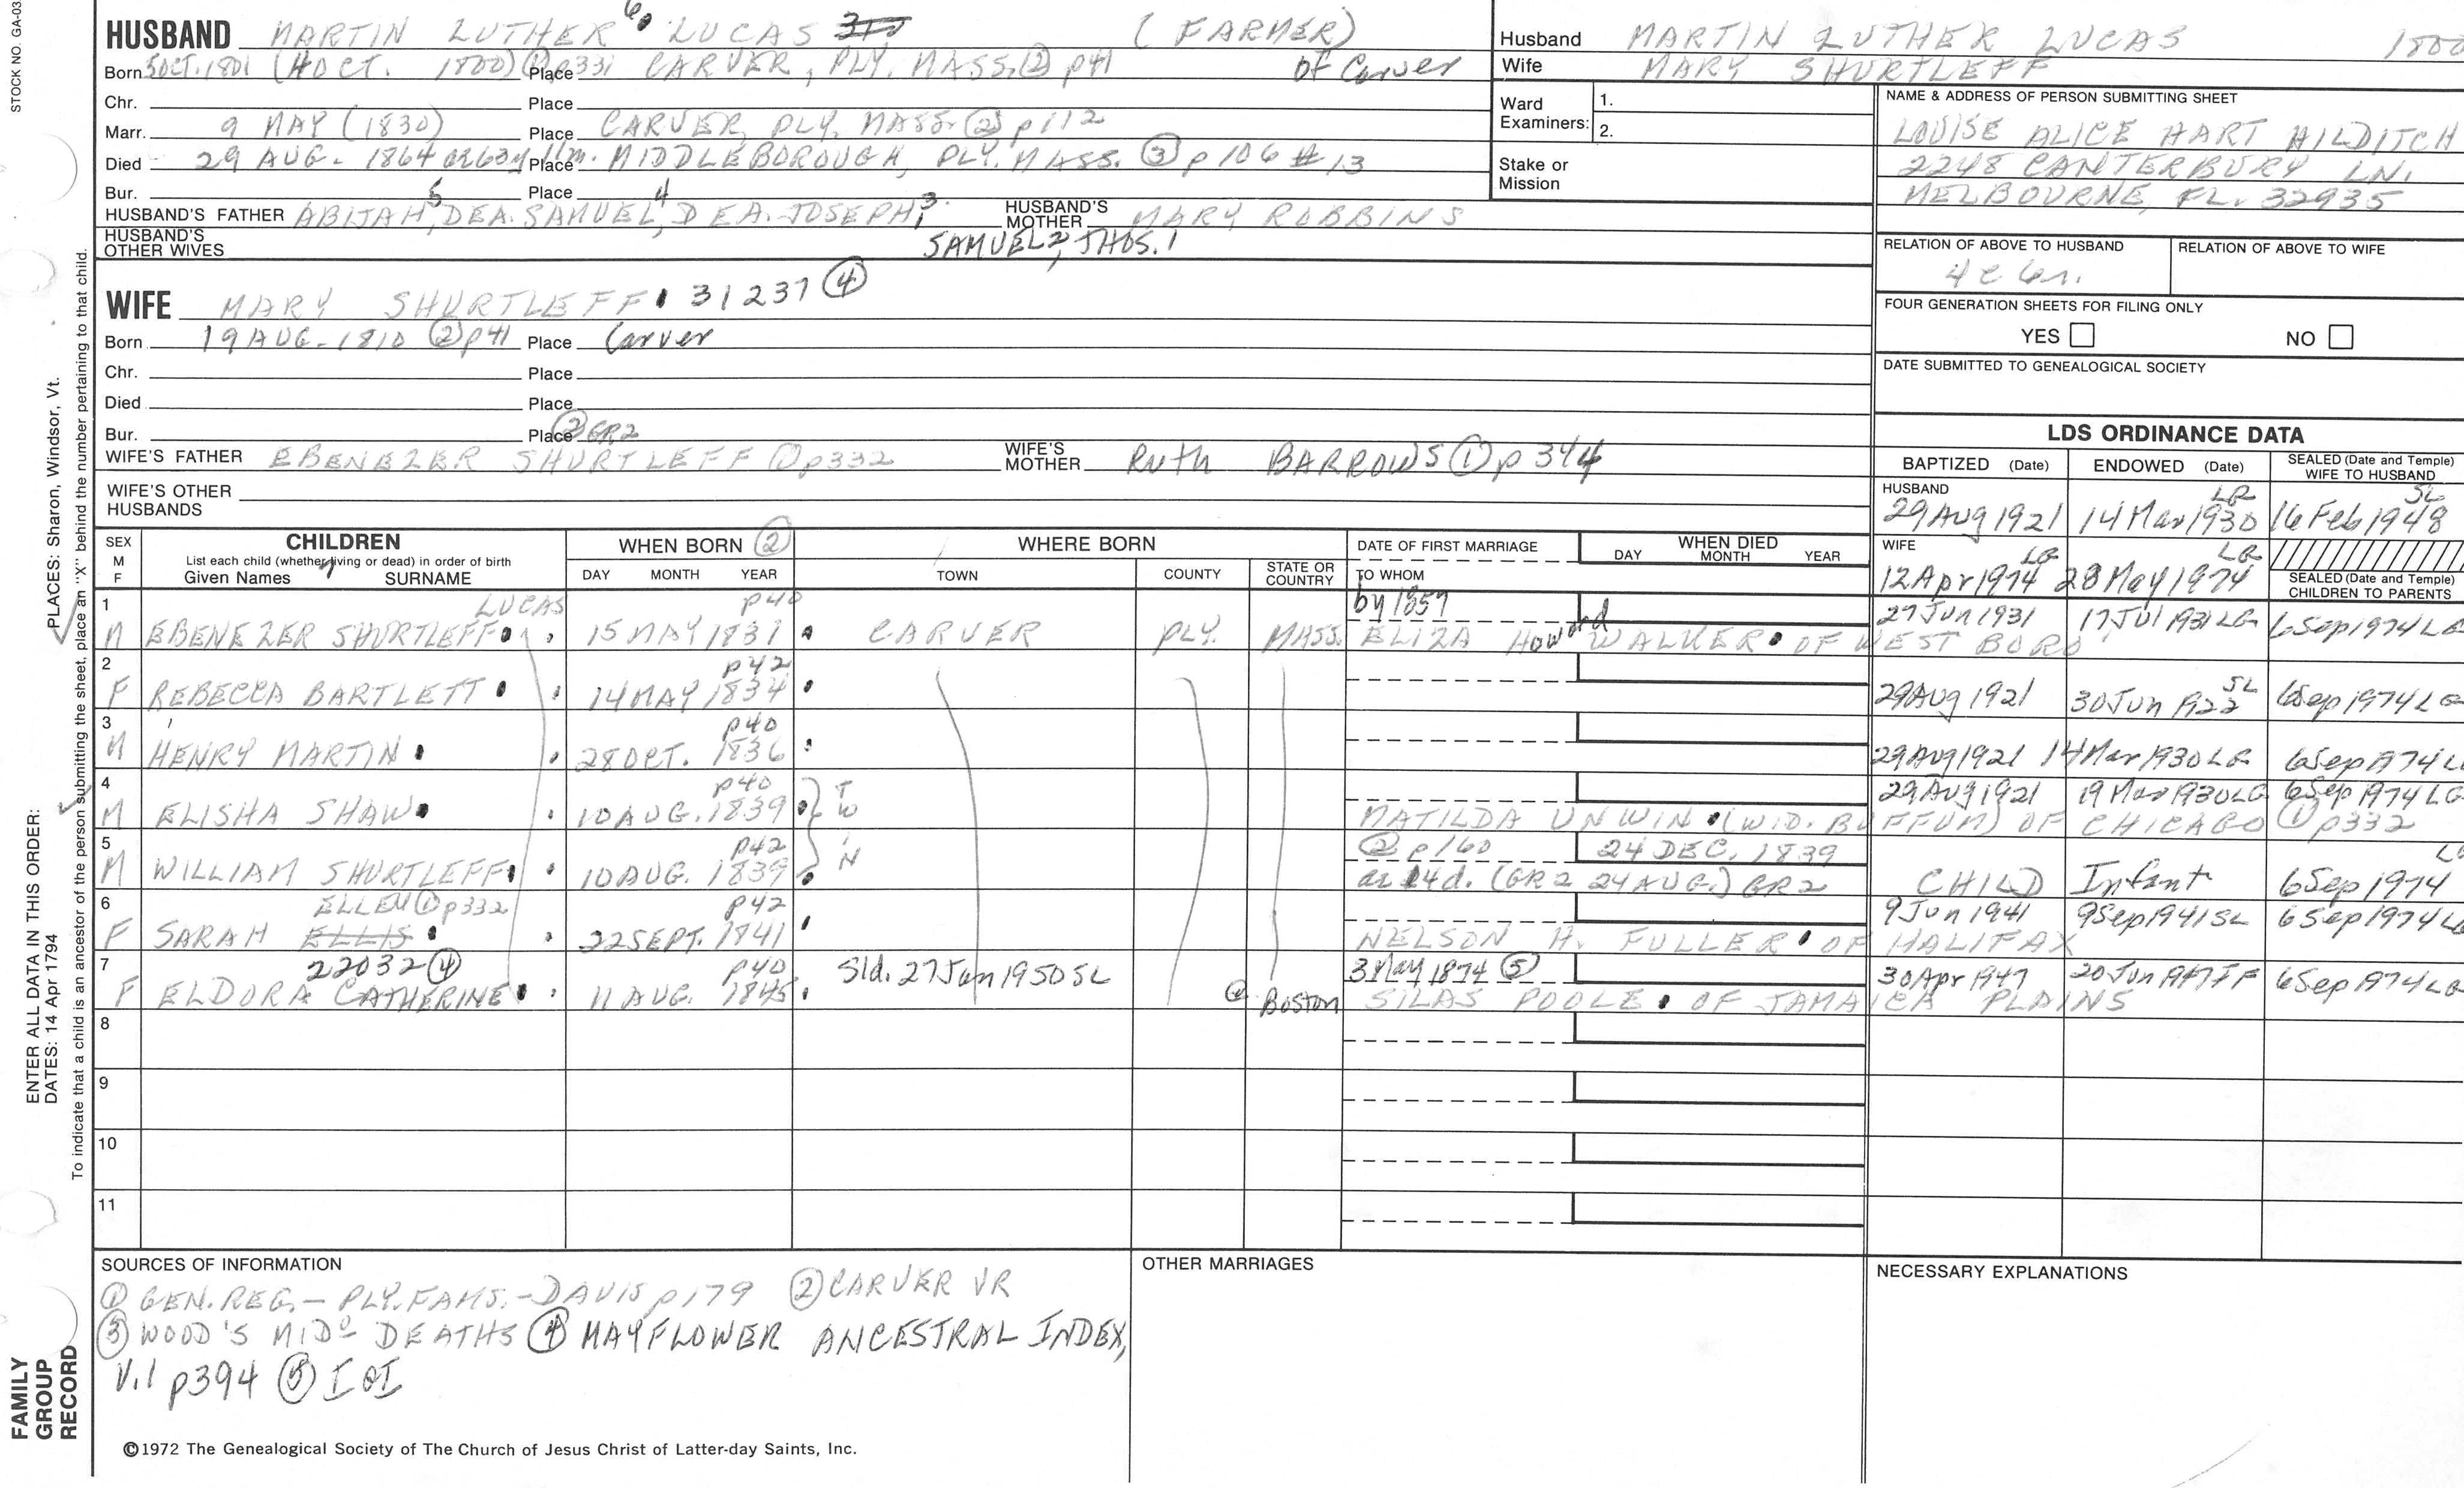 STOCK NO. GA-03
HUSBAND MARTIN LUTHER 6 LUCAS (FARMER)
Born 5 OCT. 1801 (4 OCT. 1800) ① p331 Place CARVER, PLY. MASS. ② p41 of Carver
Chr. Place
Marr. 9 MAY (1830) Place CARVER, PLY. MASS. ② p112
Died 29 AUG. 1864 ae 63y 11m. Place MIDDLEBOROUGH, PLY. MASS. ③ p106 #13
Bur. Place
HUSBAND'S FATHER ABIJAH 5, DEA. SAMUEL 4, DEA. JOSEPH 3, HUSBAND'S MOTHER MARY ROBBINS
HUSBAND'S OTHER WIVES SAMUEL 2, THOS. 1
WIFE MARY SHURTLEFF 31237 ④
Born 19 AUG. 1810 ② p41 Place Carver
Chr. Place
Died Place
Bur. Place ② GR2
WIFE'S FATHER EBENEZER SHURTLEFF ① p332 WIFE'S MOTHER RUTH BARROWS ① p344
WIFE'S OTHER HUSBANDS
Husband MARTIN LUTHER LUCAS 1800
Wife MARY SHURTLEFF
Ward Examiners: 1.
2.
Stake or Mission
NAME & ADDRESS OF PERSON SUBMITTING SHEET
LOUISE ALICE HART HILDITCH
2248 CANTERBURY LN.
MELBOURNE, FL. 32935
RELATION OF ABOVE TO HUSBAND RELATION OF ABOVE TO WIFE
FOUR GENERATION SHEETS FOR FILING ONLY
YES NO
DATE SUBMITTED TO GENEALOGICAL SOCIETY
LDS ORDINANCE DATA
BAPTIZED (Date) ENDOWED (Date) SEALED (Date and Temple) WIFE TO HUSBAND
HUSBAND 29 Aug 1921 14 Mar 1930 LG 16 Feb 1948 SL
WIFE 12 Apr 1974 LG 28 May 1974 LG
SEALED (Date and Temple) CHILDREN TO PARENTS
SEX M F CHILDREN WHEN BORN ② WHERE BORN DATE OF FIRST MARRIAGE WHEN DIED
List each child (whether living or dead) in order of birth
Given Names SURNAME DAY MONTH YEAR TOWN COUNTY STATE OR COUNTRY TO WHOM DAY MONTH YEAR
1 LUCAS p40 by 1857
M EBENEZER SHURTLEFF 15 MAY 1831 CARVER PLY. MASS. ELIZA Howard WALKER OF WEST BORO 27 Jun 1931 17 Jul 1931 LG 6 Sep 1974 LG
2 p42
F REBECCA BARTLETT 14 MAY 1834 29 Aug 1921 30 Jun 1922 SL 6 Sep 1974 LG
3 p40
M HENRY MARTIN 28 OCT. 1836 29 Aug 1921 14 Mar 1930 LG 6 Sep 1974 LG
4 p40 29 Aug 1921 19 Mar 1930 LG 6 Sep 1974 LG
M ELISHA SHAW 10 AUG. 1839 TWIN MATILDA UNWIN (WID. BUFFUM) OF CHICAGO ① p332
5 p42 ② p160 24 DEC. 1839
M WILLIAM SHURTLEFF 10 AUG. 1839 ae 14d. (GR2 24 AUG.) GR2 CHILD Infant 6 Sep 1974 LG
6 ELLEN ① p332 p42 9 Jun 1941 9 Sep 1941 SL 6 Sep 1974 LG
F SARAH ELLIS 22 SEPT. 1841 NELSON H. FULLER OF HALIFAX
7 22032 ④ p40 Sld. 27 Jun 1950 SL 3 May 1874 ⑤ 30 Apr 1947 20 Jun 1947 IF 6 Sep 1974 LG
F ELDORA CATHERINE 11 AUG. 1845 @ Boston SILAS POOLE OF JAMAICA PLAINS
8
9
10
11
SOURCES OF INFORMATION OTHER MARRIAGES NECESSARY EXPLANATIONS
① GEN. REG. - PLY. FAMS. - DAVIS p179 ② CARVER VR
③ WOOD'S MIDO DEATHS ④ MAYFLOWER ANCESTRAL INDEX,
V.1 p394 ⑤ IGI
©1972 The Genealogical Society of The Church of Jesus Christ of Latter-day Saints, Inc.
ENTER ALL DATA IN THIS ORDER:
DATES: 14 Apr 1794 PLACES: Sharon, Windsor, Vt.
To indicate that a child is an ancestor of the person submitting the sheet, place an "X" behind the number pertaining to that child.
FAMILY
GROUP
RECORD